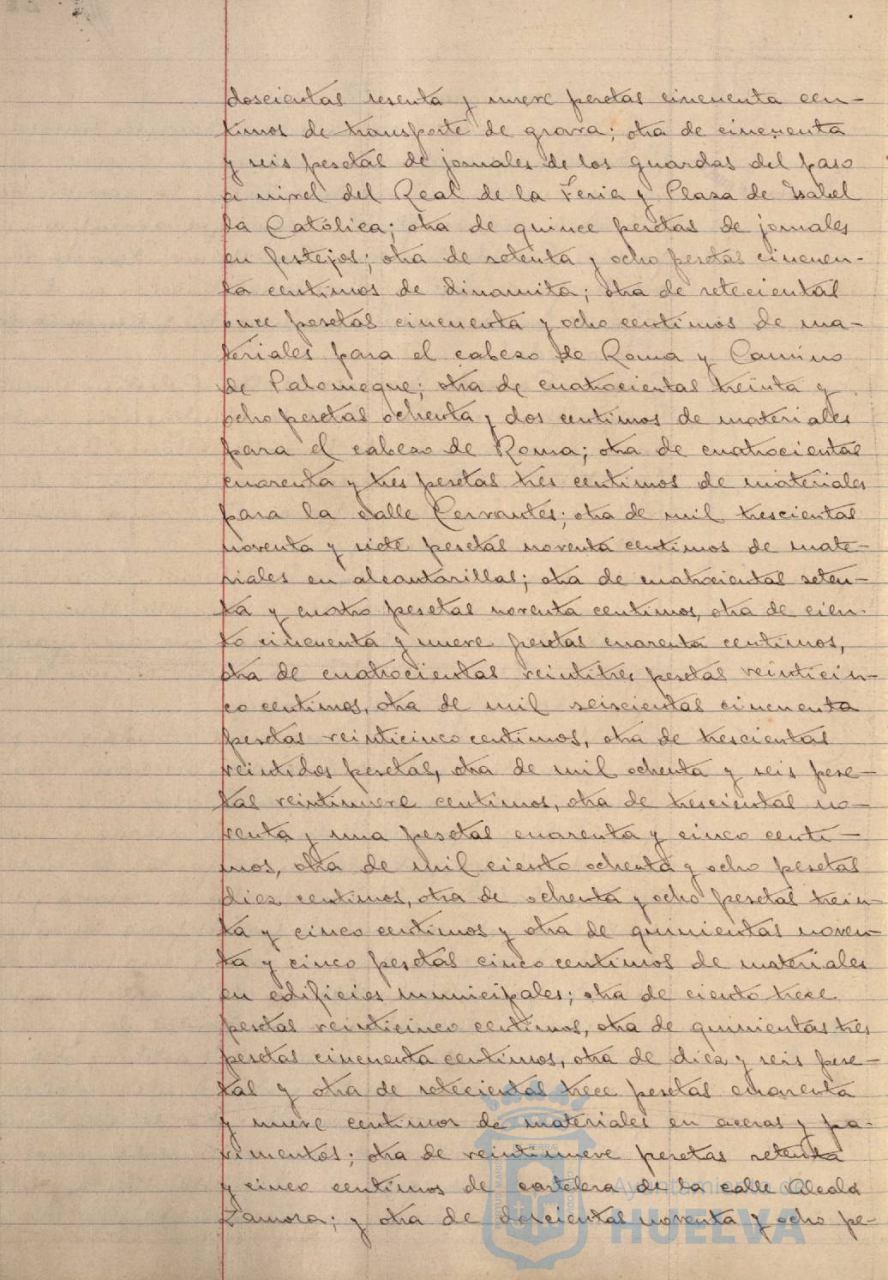 doscientas sesenta y nueve pesetas cincuenta cen-
timos de transporte de grava; otra de cincuenta
y seis pesetas de jornales de los guardas del paso
a nivel del Real de la Feria y Plaza de Isabel
la Católica; otra de quince pesetas de jornales
en festejos; otra de setenta y ocho pesetas cincuen-
ta centimos de dinamita; otra de setecientas
once pesetas cincuenta y ocho centimos de ma-
teriales para el cabezo de Roma y Camino
de Palomeque; otra de cuatrocientas treinta y
ocho pesetas ochenta y dos centimos de materiales
para el cabezo de Roma; otra de cuatrocientas
cuarenta y tres pesetas tres centimos de materiales
para la calle Cervantes; otra de mil trescientas
noventa y siete pesetas noventa centimos de mate-
riales en alcantarillas; otra de cuatrocientas seten-
ta y cuatro pesetas noventa centimos, otra de cien-
to cincuenta y nueve pesetas cuarenta centimos,
otra de cuatrocientas veintitres pesetas veinticin-
co centimos, otra de mil seiscientas cincuenta
pesetas veinticinco centimos, otra de trescientas
veintidos pesetas, otra de mil ochenta y seis pese-
tas veintinueve centimos, otra de trescientas no-
venta y una pesetas cuarenta y cinco centi-
mos, otra de mil ciento ochenta y ocho pesetas
diez centimos, otra de ochenta y ocho pesetas trein-
ta y cinco centimos y otra de quinientas noven-
ta y cinco pesetas cinco centimos de materiales
en edificios municipales; otra de ciento trece
pesetas veinticinco centimos, otra de quinientas tres
pesetas cincuenta centimos, otra de diez y seis pese-
tas y otra de setecientas trece pesetas cuarenta
y nueve centimos de materiales en aceras y pa-
vimentos; otra de veintinueve pesetas setenta
y cinco centimos de cartelera de la calle Alcala
Zamora; y otra de doscientas noventa y ocho pe-
Ayuntamiento de
HUELVA